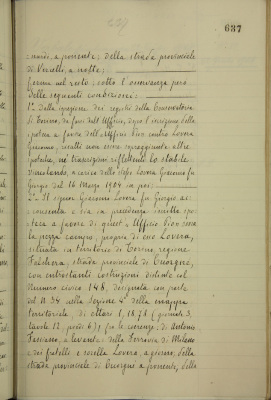 229
637
nuovi, a ponente; della strada provinciale
di Vercelli, a notte;
ferma nel resto; sotto l'osservanza però
delle seguenti condizioni:
1° Dalla ispezione dei registri della Conservatoria
di Torino, da farsi dall'Ufficio, dopo l'iscrizione della
ipoteca a favore dell'Ufficio Pio contro Lovera
Giacomo, risulti non essere sopraggiunte altre
ipoteche, né trascrizioni riflettenti lo stabile
vincolando, a carico dello stesso Lovera Giacomo fu
Giorgio dal 16 Marzo 1904 in poi;
2° Il signor Giacomo Lovera fu Giorgio ac-
consenta e sia in precedenza inscritta ipo-
teca a favore di quest'Ufficio Pio sopra
la pezza campo, propria di esso Lovera,
situata in territorio di Torino, regione
Falchera, strada provinciale di Cuorgnè,
con entrostanti costruzioni distinte col
Numero civico 148, designata con parte
del N. 34 nella Sezione 4ª della mappa
territoriale, di ettari 1,1878 (giornate 3,
tavole 12, piedi 6) fra le coerenze: di Antonio
a levante; della Ferrovia di Milano
e dei fratelli e sorella Lovera, a giorno; della
strada provinciale di Cuorgnè a ponente, della